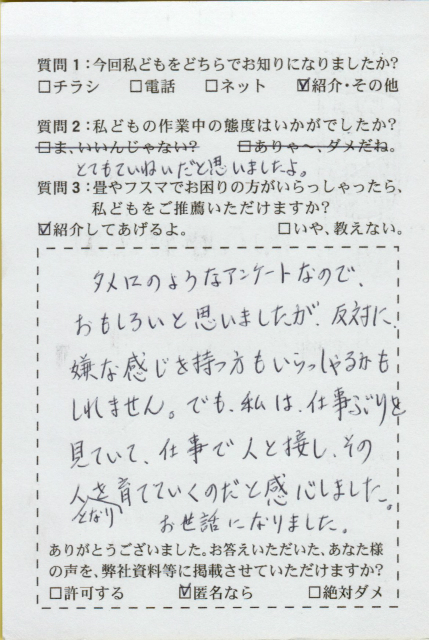 質問1:今回私どもをどちらでお知りになりましたか?
□チラシ □電話 □ネット ☑紹介・その他
質問2:私どもの作業中の態度はいかがでしたか?
□ま、いいんじゃない? □ありゃ〜、ダメだね。
とてもていねいだと思いましたよ。
質問3:畳やフスマでお困りの方がいらっしゃったら、
私どもをご推薦いただけますか?
☑紹介してあげるよ。 □いや、教えない。
タメ口のようなアンケートなので、
おもしろいと思いましたが、反対に、
嫌な感じを持つ方もいらっしゃるかも
しれません。でも、私は、仕事ぶりを
見ていて、仕事で人と接し、その
人となりを育てていくのだと感心しました。
お世話になりました。
ありがとうございました。お答えいただいた、あなた様
の声を、弊社資料等に掲載させていただけますか?
□許可する ☑匿名なら □絶対ダメ